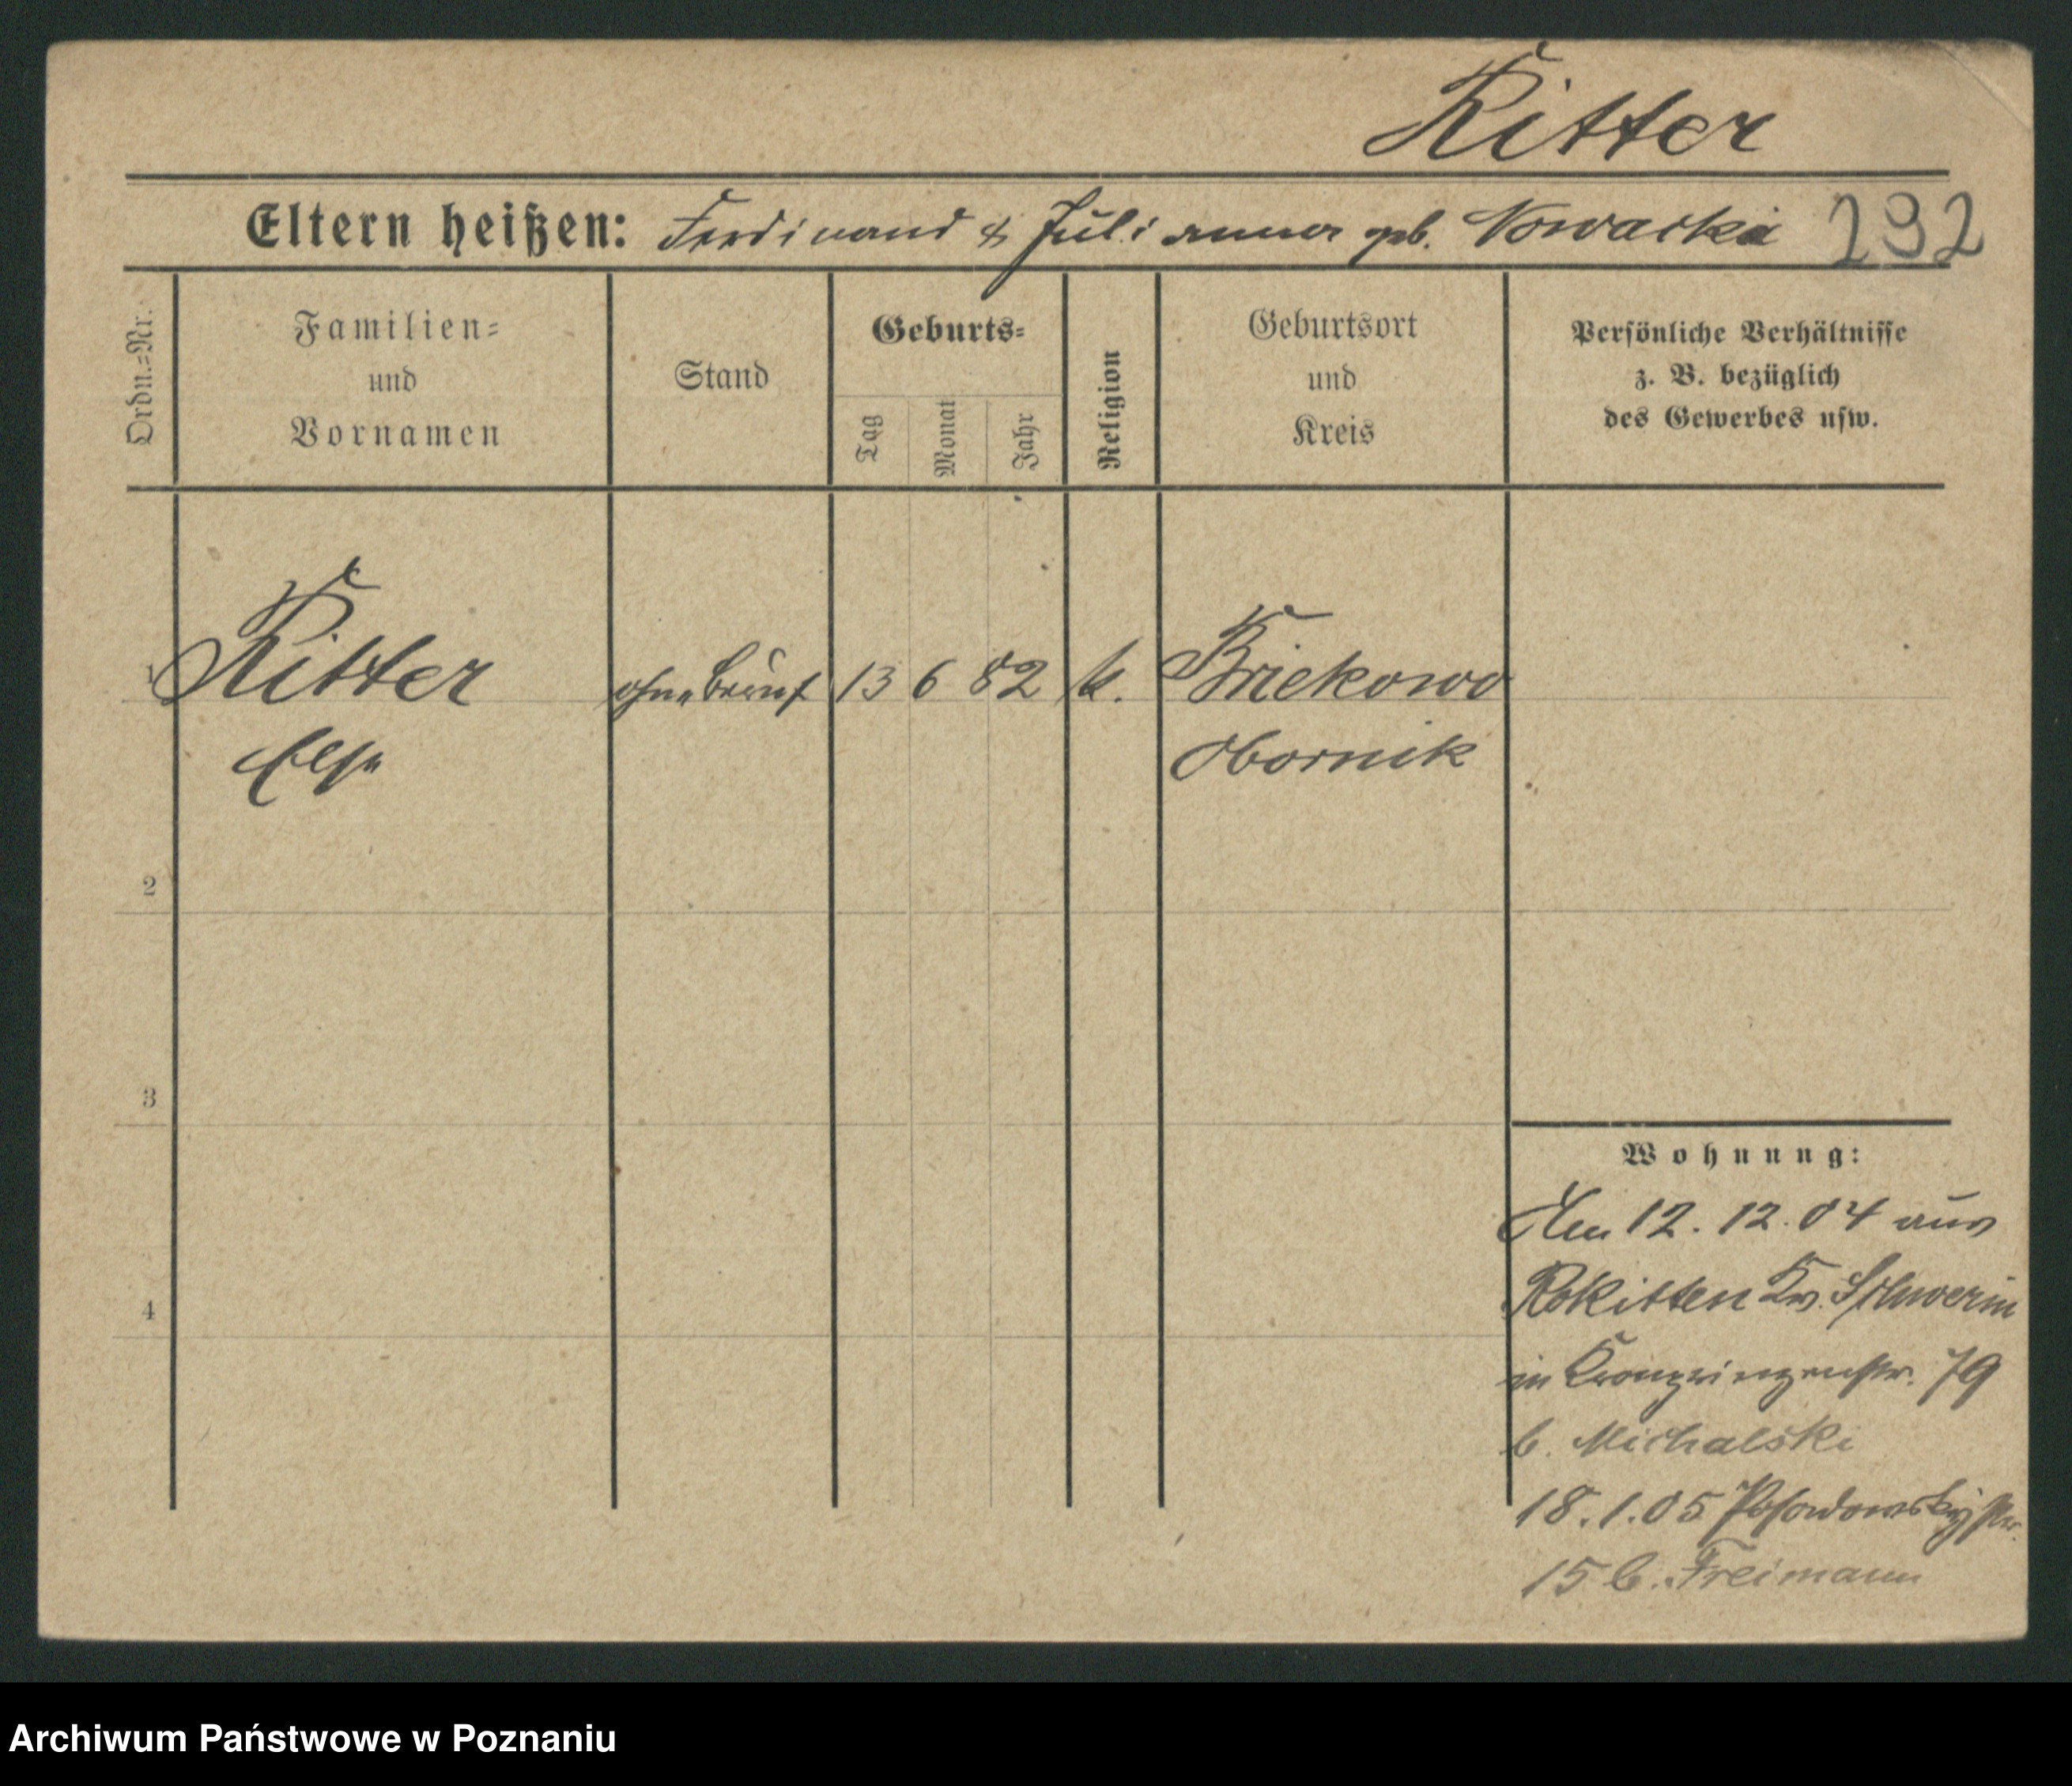 Ritter
Eltern heißen: Ferdinand & Julianna geb. Nowacka 292
Ordn.=Nr.
Familien=
und
Vornamen
Stand
Geburts=
Tag
Monat
Jahr
Religion
Geburtsort
und
Kreis
Persönliche Verhältnisse
z. B. bezüglich
des Gewerbes usw.
1 Ritter ohne Beruf 13 6 82 k.
Else Obornik
2
3
4
Wohnung:
Am 12. 12. 04 aus
Rokitten Kr. Schwerin
in Kronprinzenstr. 79
b. Michalski
18. 1. 05 Posadowskystr.
15 b. Freimann
Archiwum Państwowe w Poznaniu